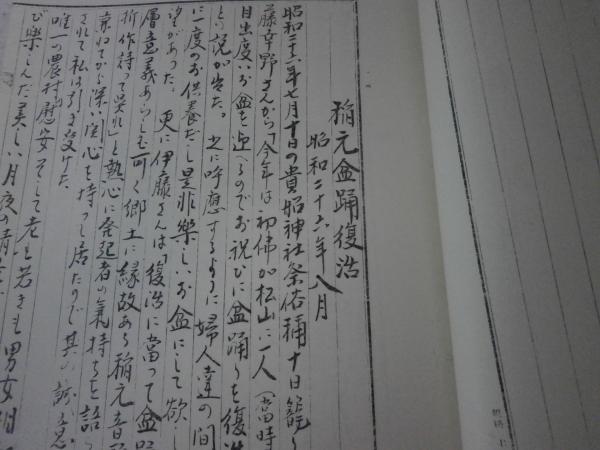 稲元盆踊復浩
昭和二十六年八月
昭和二十六年七月十日の貴船神社祭俗稱十日籠り
藤幸野さんから「今年は初佛が松山に二人(當時
目出度いお盆を迎へるのでお祝ひに盆踊りを復浩
との説が出た。之に呼應するように婦人達の間
に一度のお供養だし是非樂しいお盆にして欲し
望があった。更に伊藤さんは「復浩に當って盆踊
層意義あらしむ可く郷土に縁故ある稲元音頭
折作詩って呉れ」と熱心に発起者の氣持ちを語
兼ねてから深い関心を持って居たので其の誠意
されて私は引き受けた。
唯一の農村慰安そして老も若きも男女
び樂しんだ美しい月夜の